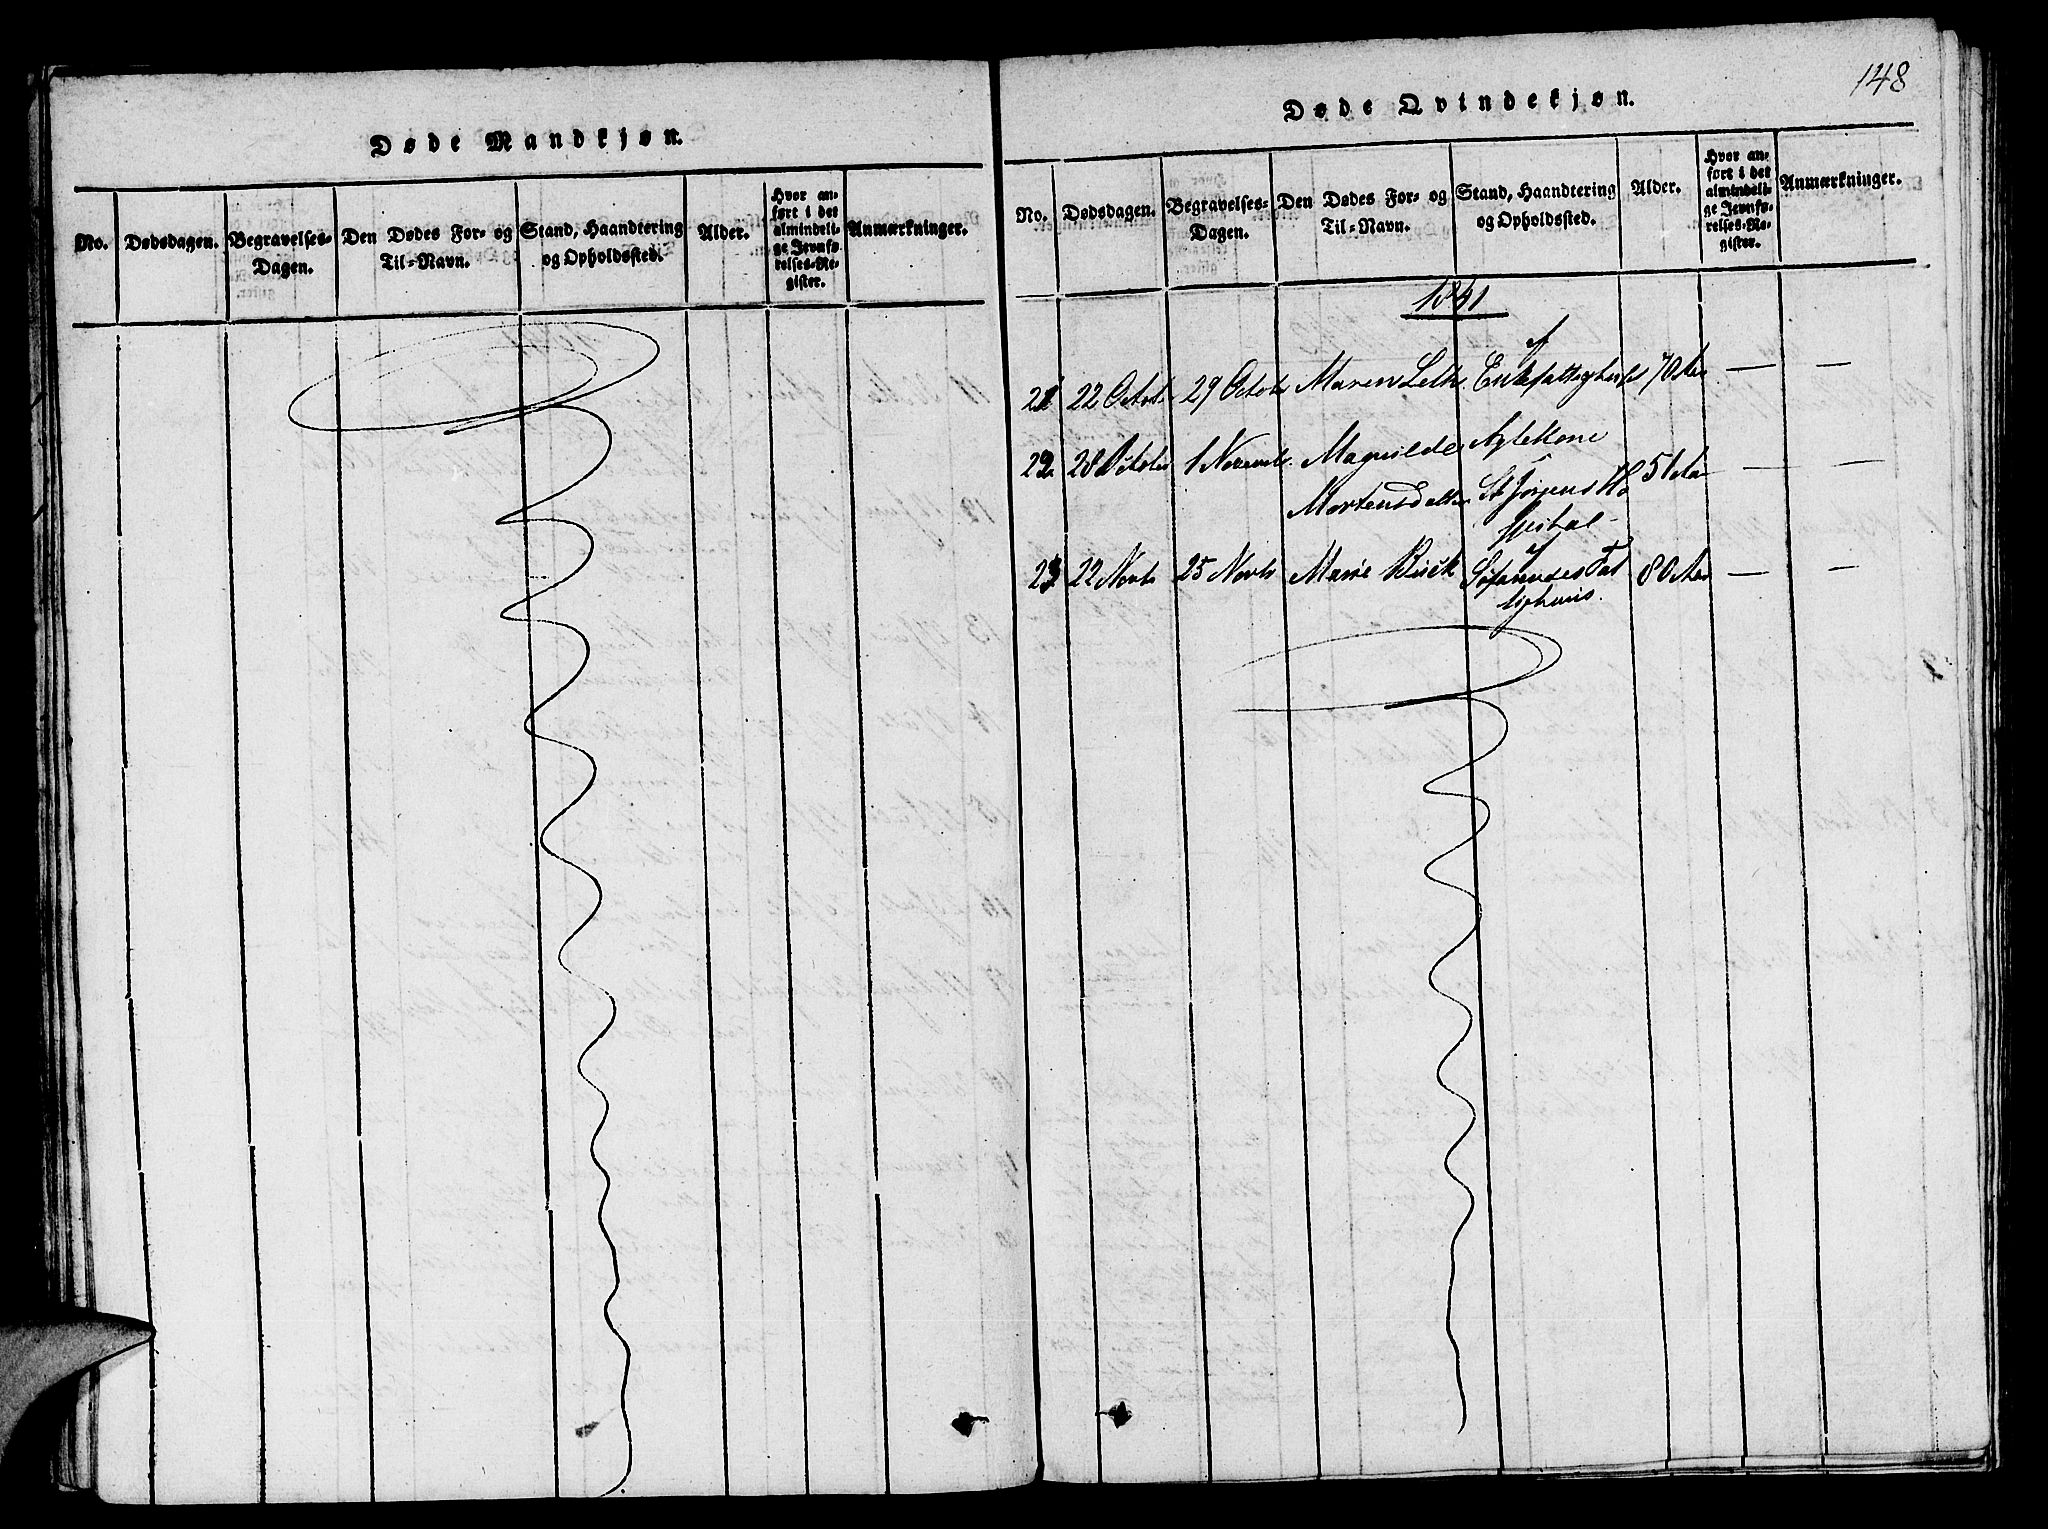 148
Døde Mandkjøn.
No.
Dødsdagen.
Begravelses-
Dagen.
Den Dødes For- og
Til-Navn.
Stand, Haandtering
og Opholdssted.
Alder.
Hvor an-
ført i det
almindeli-
ge Jevnfø-
relses-Re-
gister.
Anmærkninger.
Døde Qvindekjøn.
No.
Dødsdagen.
Begravelses-
Dagen.
Den Dødes For- og
Til-Navn.
Stand, Haandtering
og Opholdssted.
Alder.
Hvor an-
ført i det
almindeli-
ge Jevnfø-
relses-Re-
gister.
Anmærkninger.
1841
21 22 Octob 29 Octob Maren 70 Aar — —
22 28 Octob 1 Novemb. Magnilde Kone 51 Aar — —
Mortensdatter St Jørgens Ho
spital
23 22 Novb 25 Novb Marie Busck Søfarendes Fat 80 Aar — —
tighuus.